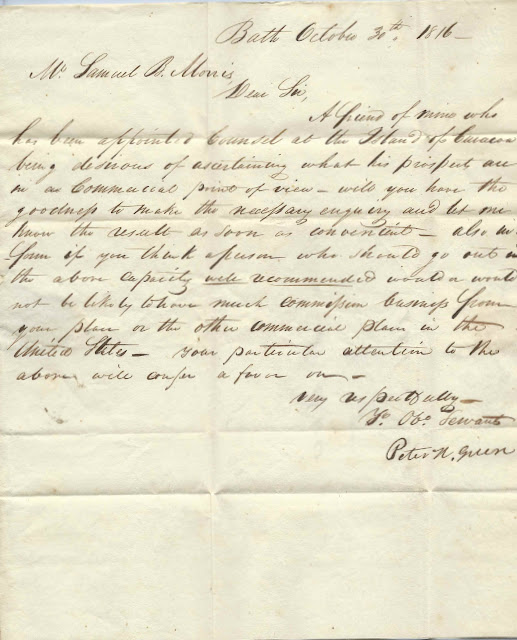 Bath October 30th. 1816 –
Mr. Samuel B. Morris,
Dear Sir,
A friend of mine who
has been appointed Counsel at the Island of Curacoa
being desirous of ascertaining what his prospect are
in a Commercial point of view – will you have the
goodness to make the necessary enquiry and let me
know the result as soon as convenient – also in
form if you think a person who should go out in
the above capacity well recommended would or would
not be likely to have much commission business from
your place or the other commercial places in the
United States – Your particular attention to the
above will confer a favor on –
very respectfully –
Yr. Obt. Servant
Peter H. Green